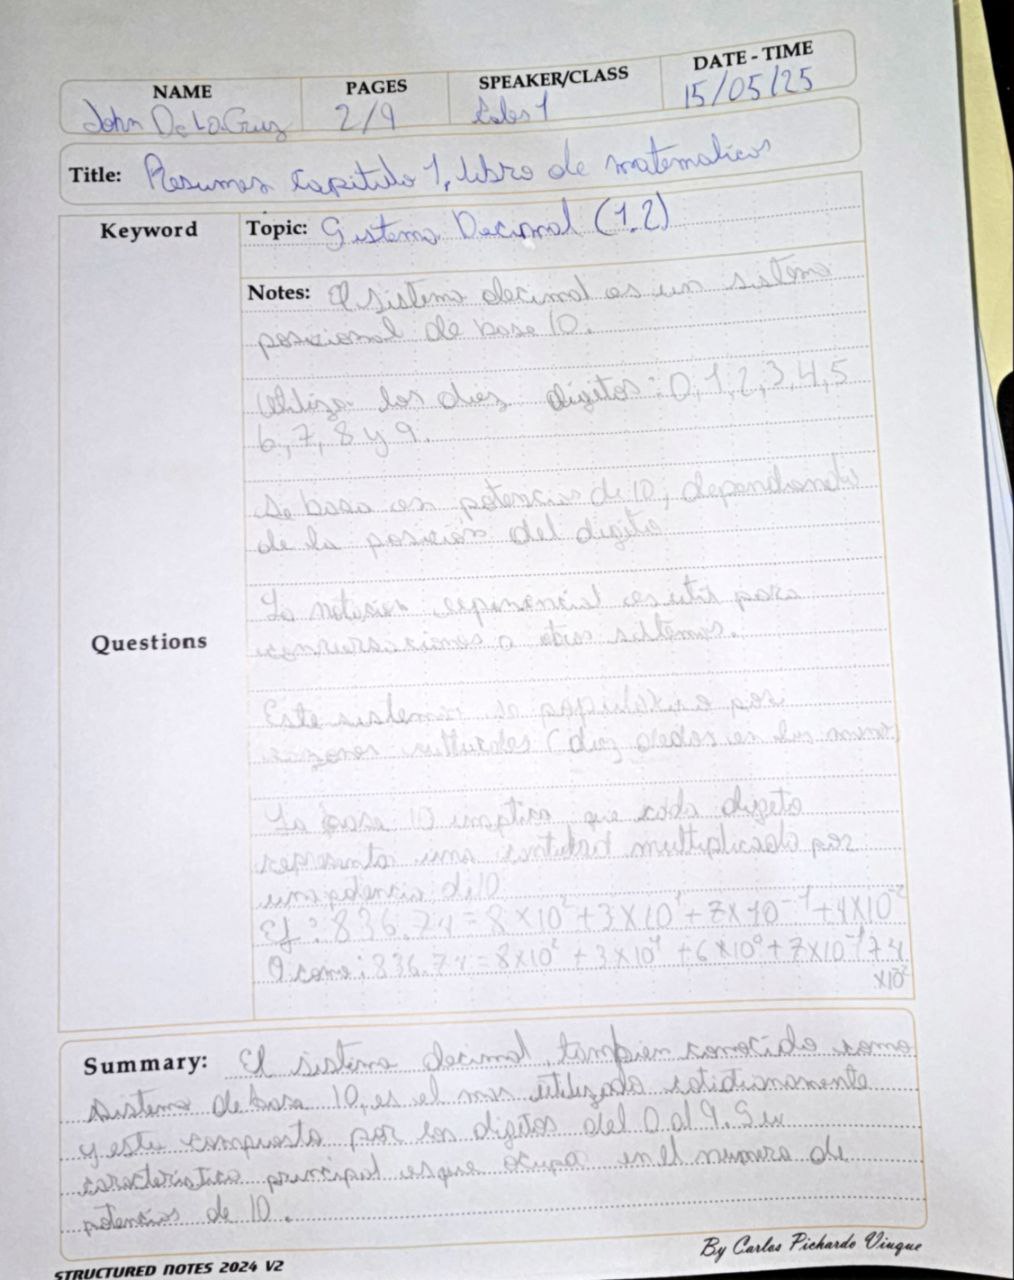 NAME PAGES SPEAKER/CLASS DATE - TIME
John De La Cruz 2/9 15/05/25
Title: Resumen Capitulo 1, libro de matematicas
Keyword
Topic: Sistema Decimal (1.2)
Notes: El sistema decimal es un sistema
posicional de base 10.
Utiliza los diez digitos: 0, 1, 2, 3, 4, 5
6, 7, 8 y 9.
Se basa en potencias de 10, dependiendo
de la posicion del digito
La notacion exponencial es util para
conversaciones a otros sistemas.
Questions
Este sistema se popularizo por
razones culturales (diez dedos en las manos)
La base 10 implica que cada digito
representa una cantidad multiplicado por
una potencia de 10
Ej: 836.74 = 8×10² + 3×10¹ + 7×10⁻¹ + 4×10⁻²
O como: 836.74 = 8×10² + 3×10¹ + 6×10⁰ + 7×10⁻¹ + 4
×10²
Summary: El sistema decimal, tambien conocido como
sistema de base 10, es el mas utilizado cotidianamente
y esta compuesto por los digitos del 0 al 9. Su
caracteristica principal es que ocupa en el numero de
potencias de 10.
By Carlos Pichardo Viuque
STRUCTURED NOTES 2024 V2